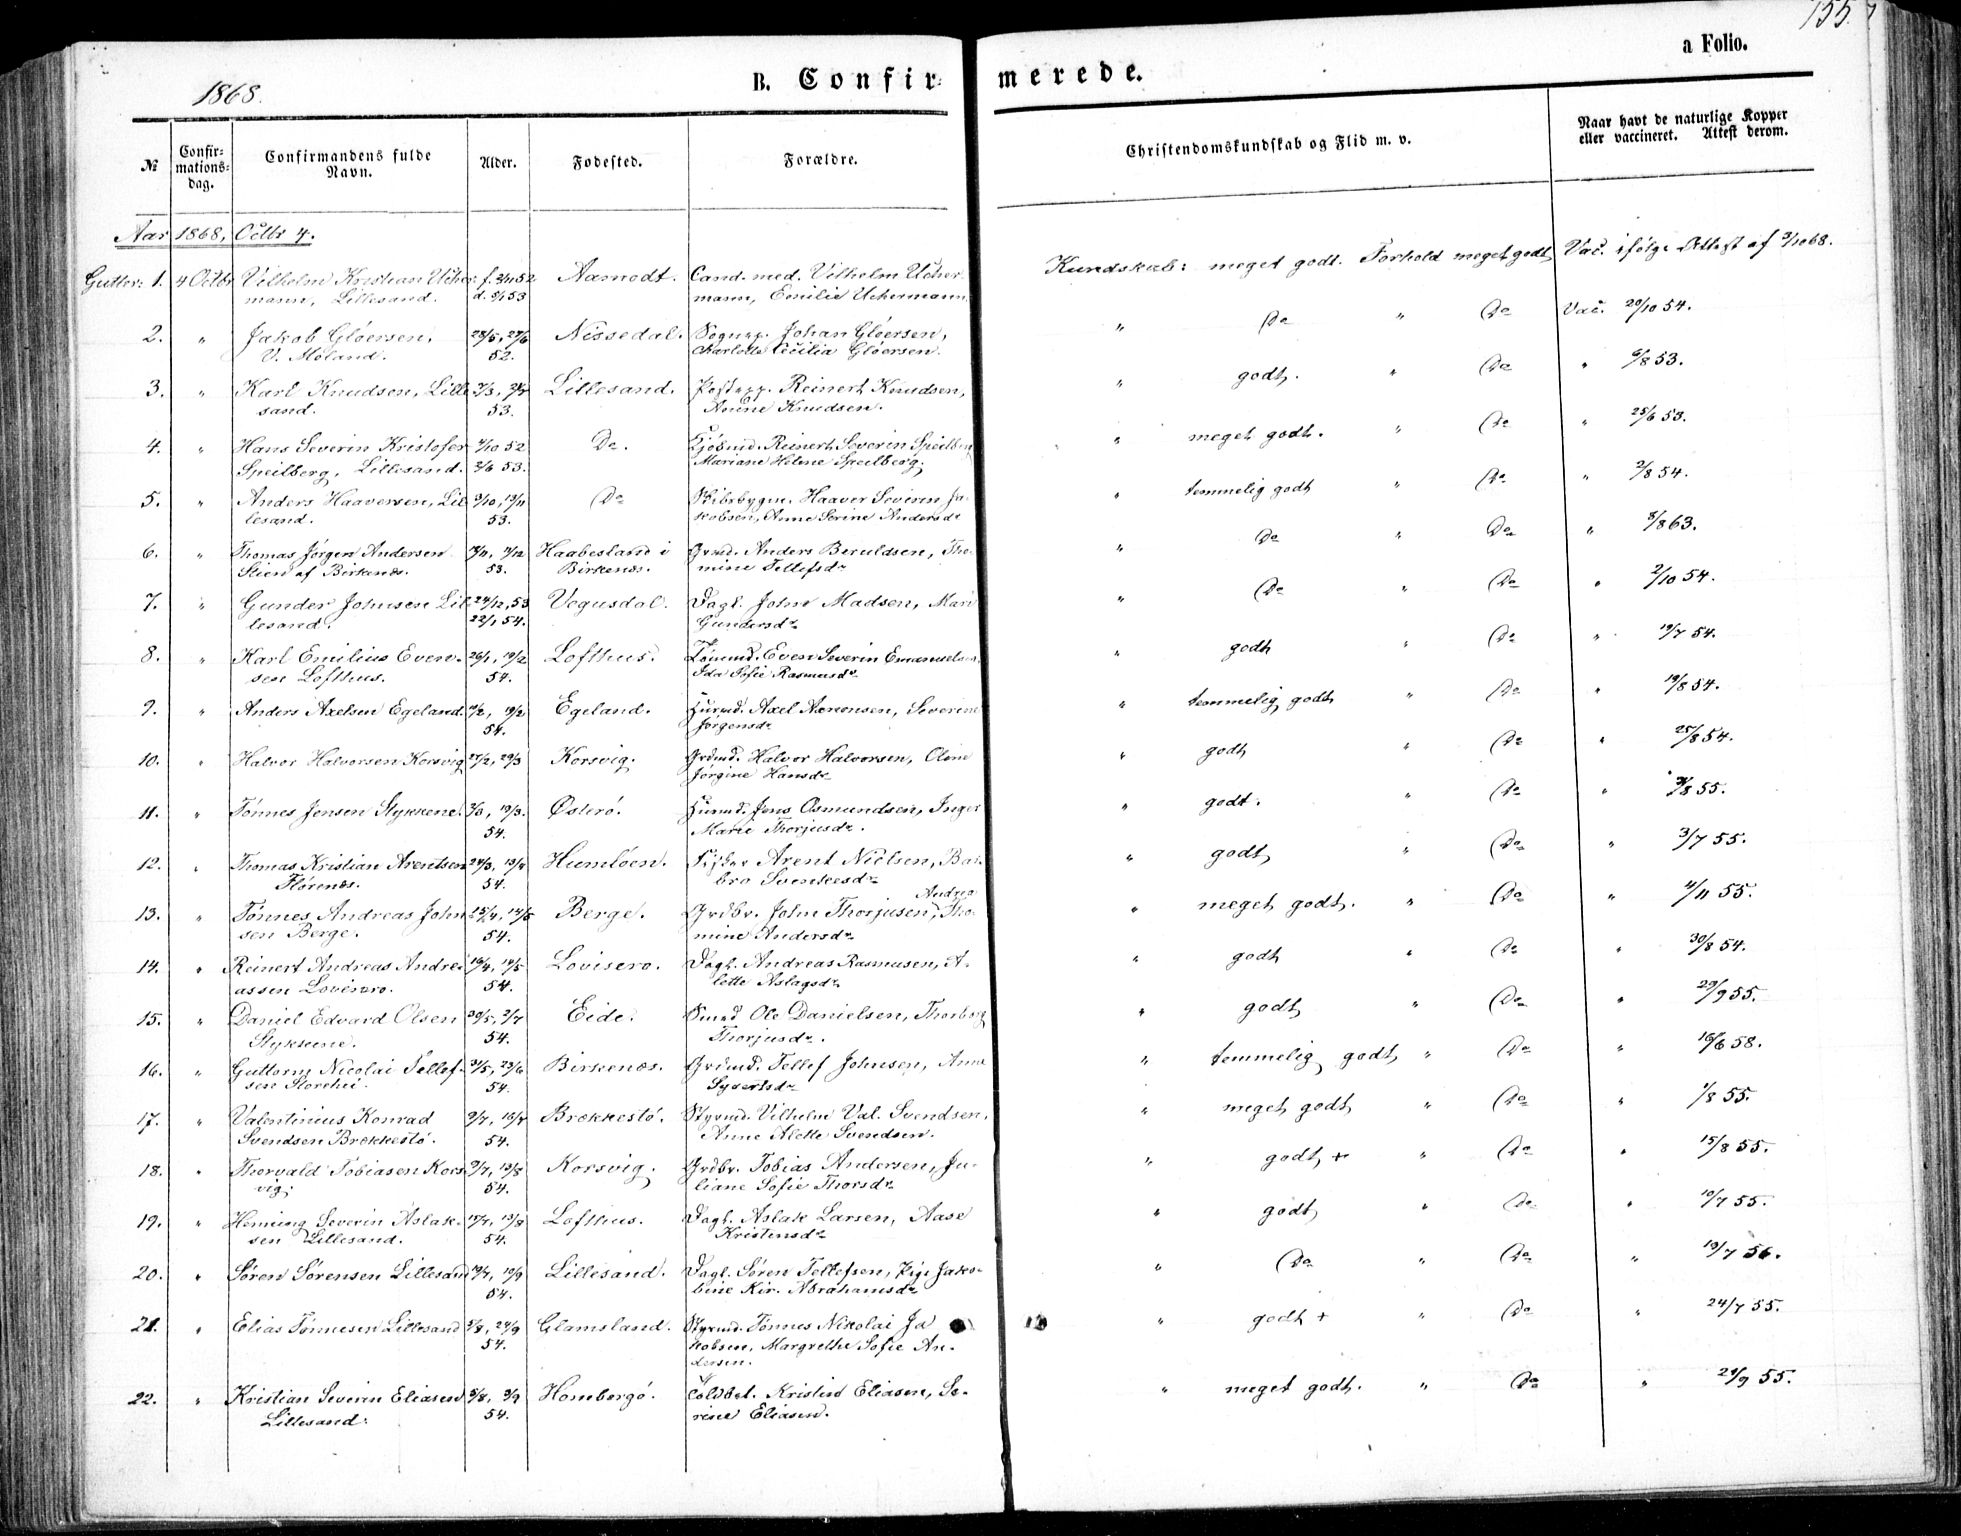 155.
a Folio.
1868.
B. Confirmerede.
№
Confirmationsdag.
Confirmandens fulde Navn.
Alder.
Fødested.
Forældre.
Christendomskundskab og Flid m. v.
Naar havt de naturlige Kopper eller vaccineret. Attest derom.
Aar 1868, Octbr 4.
Gutter: 1. 4 Octbr Vilhelm Kristian Ucher- f. 2/11 52 Aamodt. Cand. med. Vilhelm Ucher- Kundskab: meget godt. Forhold meget godt Vac. ifølge Attest af 3/10 68.
mann, Lillesand. d. 5/1 53 mann, Emilie Uchermann.
2. " Jakob Gløersen, 28/5, 27/6 Nissedal. Sognep. Johan Gløersen, " Do " Do Vac. 20/10 54.
V. Moland. 52. Charlotte Cecilia Gløersen.
3. " Karl Knudsen, Lille Lillesand. Postexp. Reinert Knudsen, " godt. " Do " 9/8 53.
sand. 53. Knudsen.
4. " Hans Severin Kristofer 4/10 52 Do. Kjøbmd. Reinert Severin Speilberg " meget godt. " Do " 25/6 53.
Speilberg, Lillesand. 2/6 53. Mariane Helene Speilberg.
5. " Anders Haaversen, Lil 9/10, 13/11 Do Skibsbygm. Haaver Severin Ja- " temmelig godt " Do " 2/8 54.
lesand. 53. kobsen, Anne Serine Andersdr
6. " Thomas Jørgen Andersen Haabesland i Grmd. Anders Beruldsen, Tho- " Do " Do " 8/8 63.
Stien af Birkenæs. 53. Birkenæs. mine Tellefsdr
7. " Gunder Johnsen Lil 24/12, 53 Vegusdal. Dagl. John Madsen, Mari " Do " Do " 2/10 54.
lesand. 22/1 54. Gundersdr
8. " Karl Emilius Even- 26/1, 19/2 Lofthus. Even Severin Emanuelsen, " godt " Do " 19/7 54.
sen Lofthus. 54. Ida Sofie Rasmusdr
9. " Anders Axelsen Egeland. Egeland. Husmd. Axel Aanonsen, Severine " temmelig godt " Do " 19/8 54.
54. Jørgensdr
10. " Halvor Halvorsen Korsvig 27/2, 29/3 Korsvig. Grdmd. Halvor Halvorsen, Oline " godt " Do " 25/8 54.
Jørgine Hansdr
11. " Tønnes Jensen Stykkene. Østerø. Husmd. Jens Osmundsen, Inger " godt. " Do " 55.
54. Marie Thorjusdr.
12. " Thomas Kristian Arentsen 24/3, 13/4 Humløen. Fisker Arent Nielsen, Bar- " godt " Do " 3/7 55.
Florenæs. 54. bro Svenkesdr
Andrea
13. " Tønnes Andreas John 25/4, 14/5 Berge. Grdbr. John Thorjusen, Tho- " meget godt. " Do " 4/11 55.
sen Berge. 54. mine Andersdr
14. " Reinert Andreas Andre- 16/4, 14/5 Lovisero. Dagl. Andreas Rasmusen, A- " godt " Do " 30/8 54.
assen Lovisero. 54. lette Aslagsdr
15. " Daniel Edvard Olsen 30/5, 2/7 Eide. Smed Ole Danielsen, Thorborg " godt " Do " 29/9 55.
Stykkene. 54. Thorjusdr.
16. " Guttorm Nicolai Tellef- 31/5, 29/6 Birkenæs. Grdmd. Tellef Johnsen, Anne " temmelig godt, " Do " 16/6 58.
sen Storehei. 54. Syvertsdr
17. " Valentinius Konrad 9/7, 16/7 Brekkestø. Styrmd. Vilhelm Val. Svendsen, " meget godt " Do " 1/8 55.
Svendsen Brekkestø. 54. Anne Alette Svendsen.
18. " Thorvald Tobiasen Kors- 9/7, 13/8 Korsvig. Grdbr. Tobias Andersen, Ju- " godt + " Do " 15/8 55.
vig. 54. liane Sofie Thorsdr
19. " Henning Severin Aslak- 17/7, 13/8 Lofthus. Dagl. Aslak Larsen, Aase " godt " Do " 10/7 55.
sen Lillesand. 54. Kristensdr
20. " Søren Sørensen Lillesand 19/7, 10/9 Lillesand. Dagl. Søren Tellefsen, Pige Jako- " Do " Do " 13/7 56.
54. bine Kir. Abrahamsdr
21. " Elias Tønnesen Lillesand 5/8, 24/9 Glamsland. Styrmd. Tønnes Nikolai Ja " godt + " Do " 24/7 55.
54. kobsen, Margrethe Sofie An-
dersen.
22. " Kristian Severin Eliasen 5/8, 3/9 Homborgø. Toldbet. Kristen Eliasen, Se- " meget godt. " Do " 21/9 55.
Lillesand. 54. rine Eliasen.